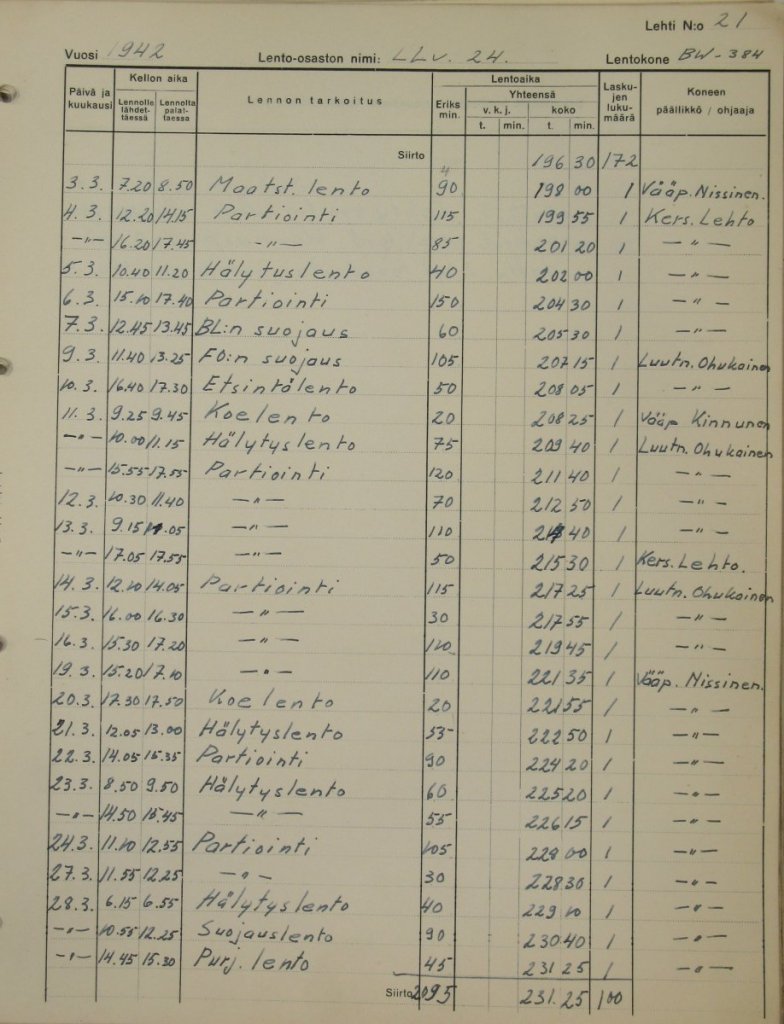 Lehti N:o 21
Vuosi 1942 Lento-osaston nimi: LLv. 24. Lentokone BW-384
Päivä ja kuukausi Kellon aika Lennolle lähdettäessä Lennolta palattaessa Lennon tarkoitus Lentoaika Eriks min. Yhteensä v. k. j. t. min. koko t. min. Laskujen lukumäärä Koneen päällikkö / ohjaaja
Siirto 196 30 172
3.3. 7.20 8.50 Maatst. lento 90 198 00 1 Vääp. Nissinen.
4.3. 12.20 14.15 Partiointi 115 199 55 1 Kers. Lehto
—"— 16.20 17.45 —"— 85 201 20 1 —"—
5.3. 10.40 11.20 Hälytuslento 40 202 00 1 —"—
6.3. 15.10 17.40 Partiointi 150 204 30 1 —"—
7.3. 12.45 13.45 BL:n suojaus 60 205 30 1 —"—
9.3. 11.40 13.25 FO:n suojaus 105 207 15 1 Luutn. Ohukainen
10.3. 16.40 17.30 Etsintälento 50 208 05 1 —"—
11.3. 9.25 9.45 Koelento 20 208 25 1 Vääp Kinnunen
—"— 10.00 11.15 Hälytyslento 75 209 40 1 Luutn. Ohukainen
—"— 15.55 17.55 Partiointi 120 211 40 1 —"—
12.3. 10.30 11.40 —"— 70 212 50 1 —"—
13.3. 9.15 11.05 —"— 110 214 40 1 —"—
—"— 17.05 17.55 —"— 50 215 30 1 Kers. Lehto.
14.3. 12.10 14.05 Partiointi 115 217 25 1 Luutn. Ohukainen
15.3. 16.00 16.30 —"— 30 217 55 1 —"—
16.3. 15.30 17.20 —"— 110 219 45 1 —"—
19.3. 15.20 17.10 —"— 110 221 35 1 Vääp. Nissinen.
20.3. 17.30 17.50 Koelento 20 221 55 1 —"—
21.3. 12.05 13.00 Hälytyslento 55 222 50 1 —"—
22.3. 14.05 15.35 Partiointi 90 224 20 1 —"—
23.3. 8.50 9.50 Hälytyslento 60 225 20 1 —"—
—"— 14.50 15.45 —"— 55 226 15 1 —"—
24.3. 11.10 12.55 Partiointi 105 228 00 1 —"—
27.3. 11.55 12.25 —"— 30 228 30 1 —"—
28.3. 6.15 6.55 Hälytyslento 40 229 10 1 —"—
—"— 10.55 12.25 Suojauslento 90 230.40 1 —"—
—"— 14.45 15.30 Purj. lento 45 231 25 1 —"—
Siirto 2095 231.25 100